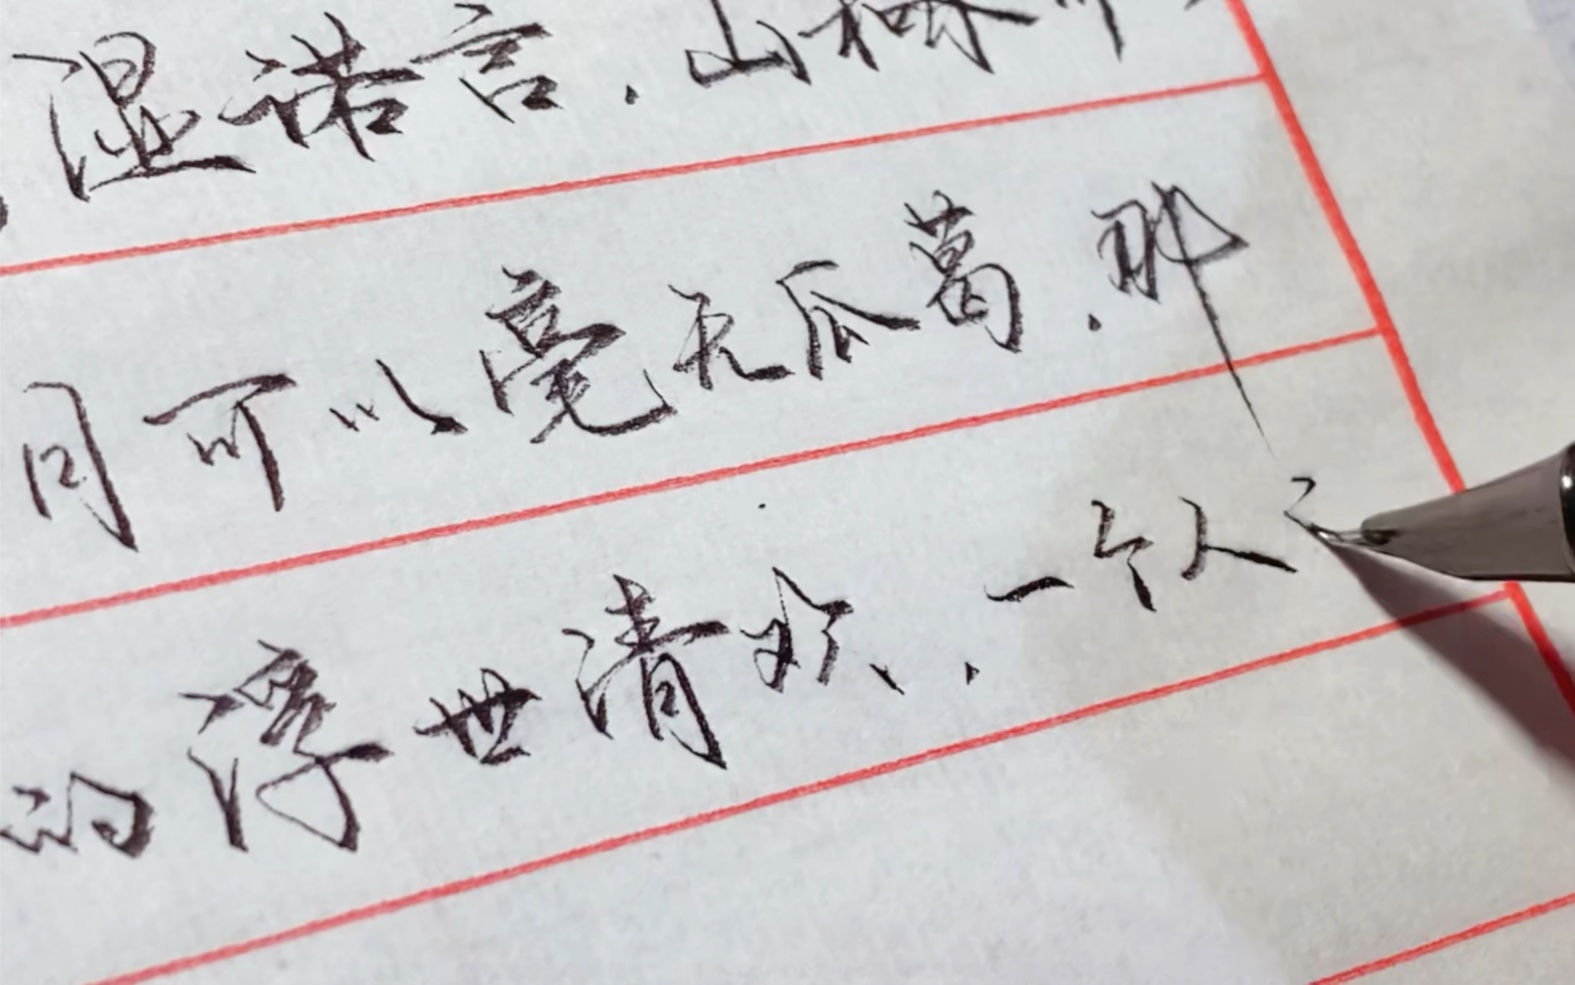 湿诺言.山
间可以毫无瓜葛.那
的浮世清欢.一个人